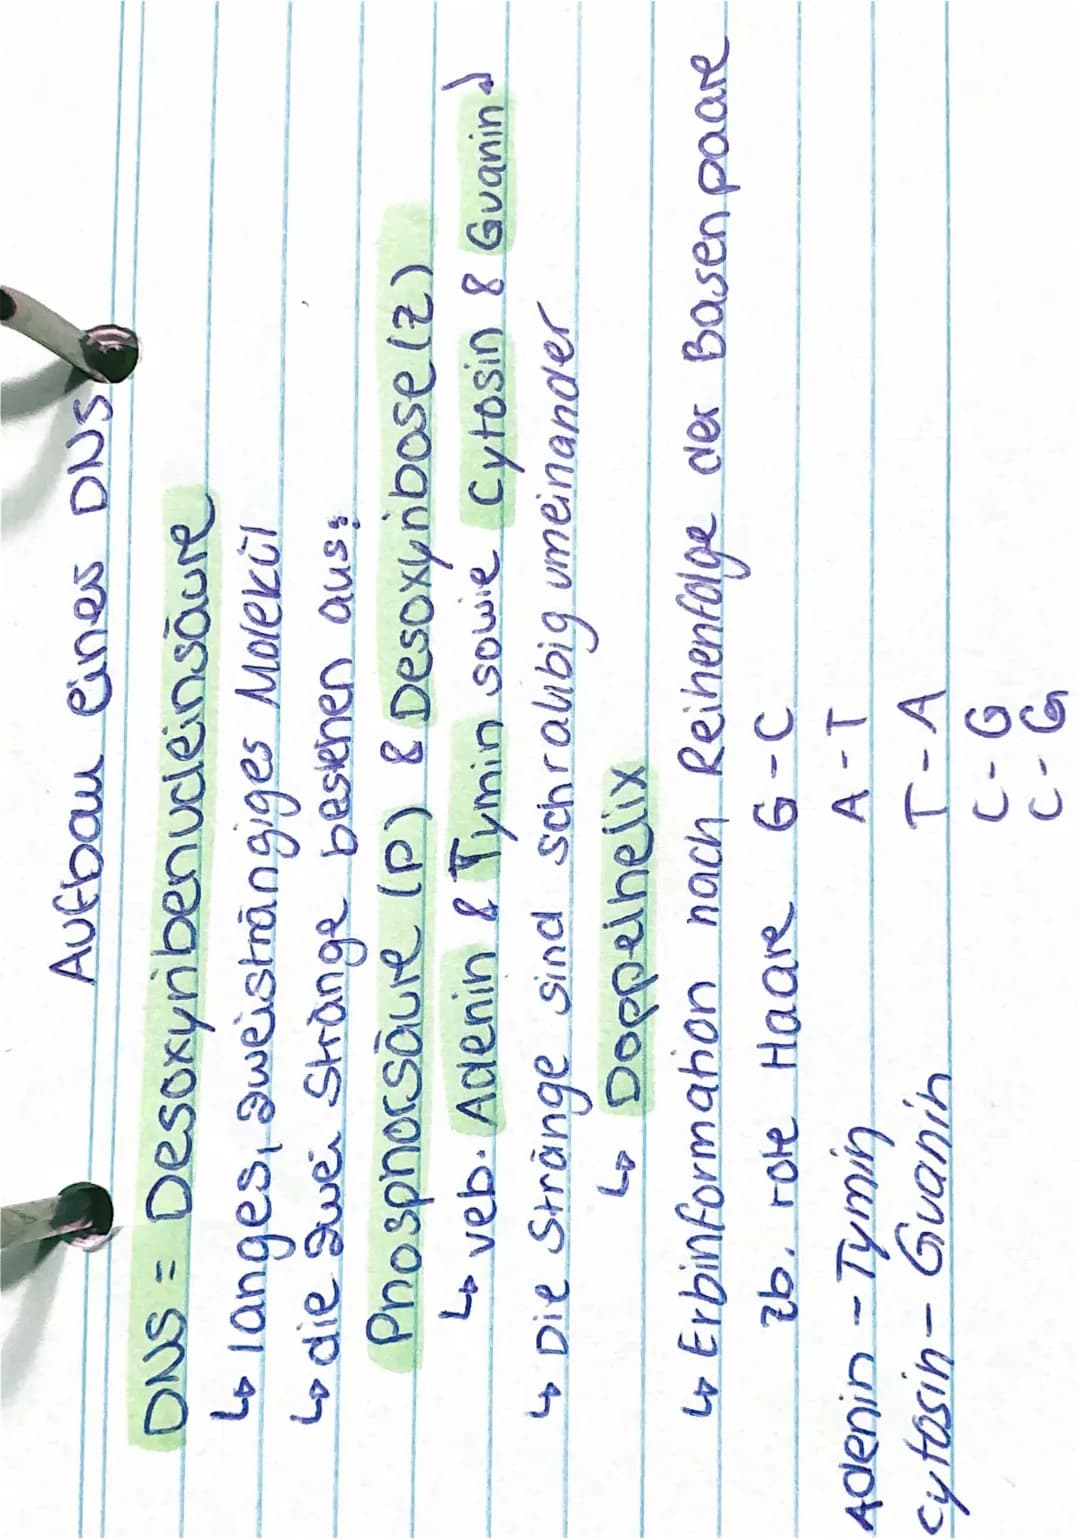 Aufbau einer DNS
DNS = Desoxyribonucleinsäure
↳ langes, zweisträngiges Molekül
↳ die zwei Stränge bestehen aus:
Phosphorsäure (P) & Desoxyribose (Z)
↳ veb. Adenin & Tymin sowie Cytosin & Guanin
↳ Die Stränge sind schraubig umeinander
↳ Doppelhelix
↳ Erbinformation nach Reihenfolge der Basenpaare
zb. rote Haare G - C
Adenin - Tymin A - T
Cytosin - Guanin T - A
C - G
C - G